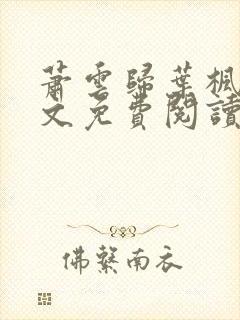 蕭雲歸葉楓
文免費閱讀
佛繫南衣